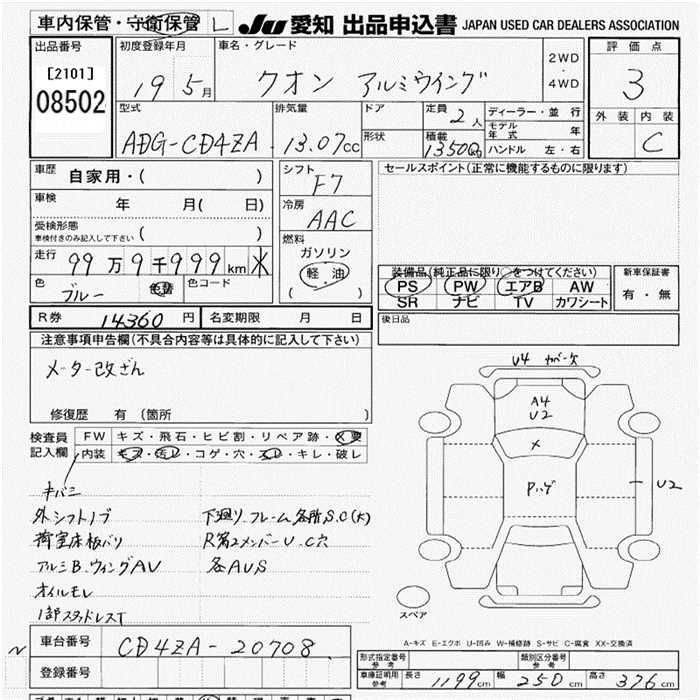 車内保管・守衛保管 L JU 愛知 出品申込書 JAPAN USED CAR DEALERS ASSOCIATION
出品番号 [2101] 08502
初度登録年月 19 5月
車名・グレード クオン アルミウイング
2WD・4WD
評価点 3
外装 内装 C
型式 ADG-CD4ZA
排気量 13.07cc
ドア
形状
定員 2人
積載 13500kg
ディーラー・並行
モデル年式 年
ハンドル 左・右
車歴 自家用・( )
車検 年 月( 日)
受検形態 車検付きのみ記入して下さい ( )
走行 99万9千999km
色 ブルー 色替 色コード
シフト F7
冷房 AAC
燃料 ガソリン 軽・油 ( )
セールスポイント(正常に機能するものに限ります)
装備品(純正品に限り○をつけてください)
PS PW エアB AW
SR ナビ TV カワシート
新車保証書 有・無
R券 14360円 名変期限 月 日
後日品
注意事項申告欄(不具合内容等は具体的に記入して下さい)
メーター改ざん
修復歴 有(箇所 )
検査員記入欄
FW キズ・飛石・ヒビ割・リペア跡・X要
内装 キズ・汚レ・コゲ・穴・スレ・キレ・破レ
キバミ
外シフトノブ
荷室床板バリ
アルミB.ウィングAU
オイルモレ
1部スタッドレスT
下廻リ フレーム各所S.C(大)
R第2メンバーU.C穴
各AUS
U4 カバー欠
A4
U2
X
Pハゲ
U2
スペア
A-キズ E-エクボ U-凹み W-補修跡 S-サビ C-腐食 XX-交換済
車台番号 CD4ZA-20708
登録番号
形式指定番号 参考
類別区分番号 参考
車庫証明用 参考 長さ 1199cm 幅 250cm 高さ 376cm